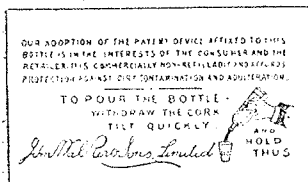 OUR ADOPTION OF THE PATENT DEVICE AFFIXED TO THIS
BOTTLE IS IN THE INTERESTS OF THE CONSUMER AND THE
RETAILER. IT IS COMMERCIALLY NON-REFILLABLE AND AFFORDS
PROTECTION AGAINST DIRT CONTAMINATION AND ADULTERATION.
TO POUR THE BOTTLE -
WITHDRAW THE CORK
TILT QUICKLY
AND
HOLD
THUS
Sons, Limited